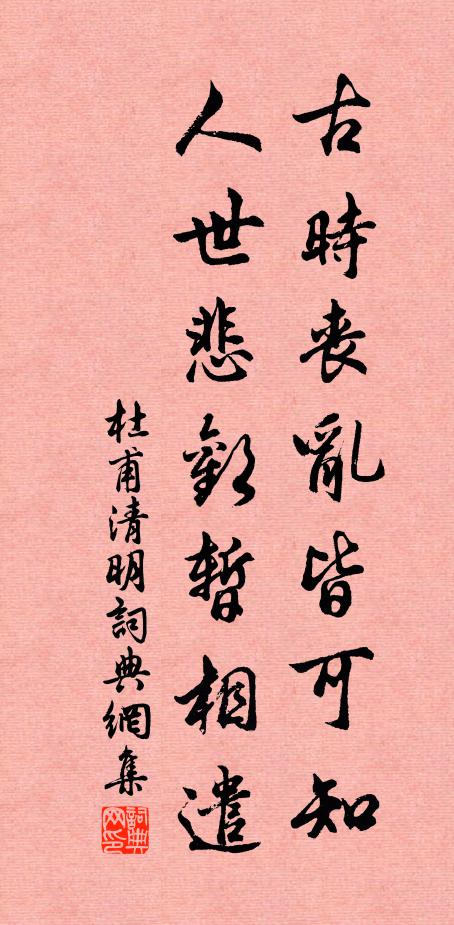 古時喪亂皆可知
人世悲歡暫相遣
杜甫清明詞典網集
詞典网印